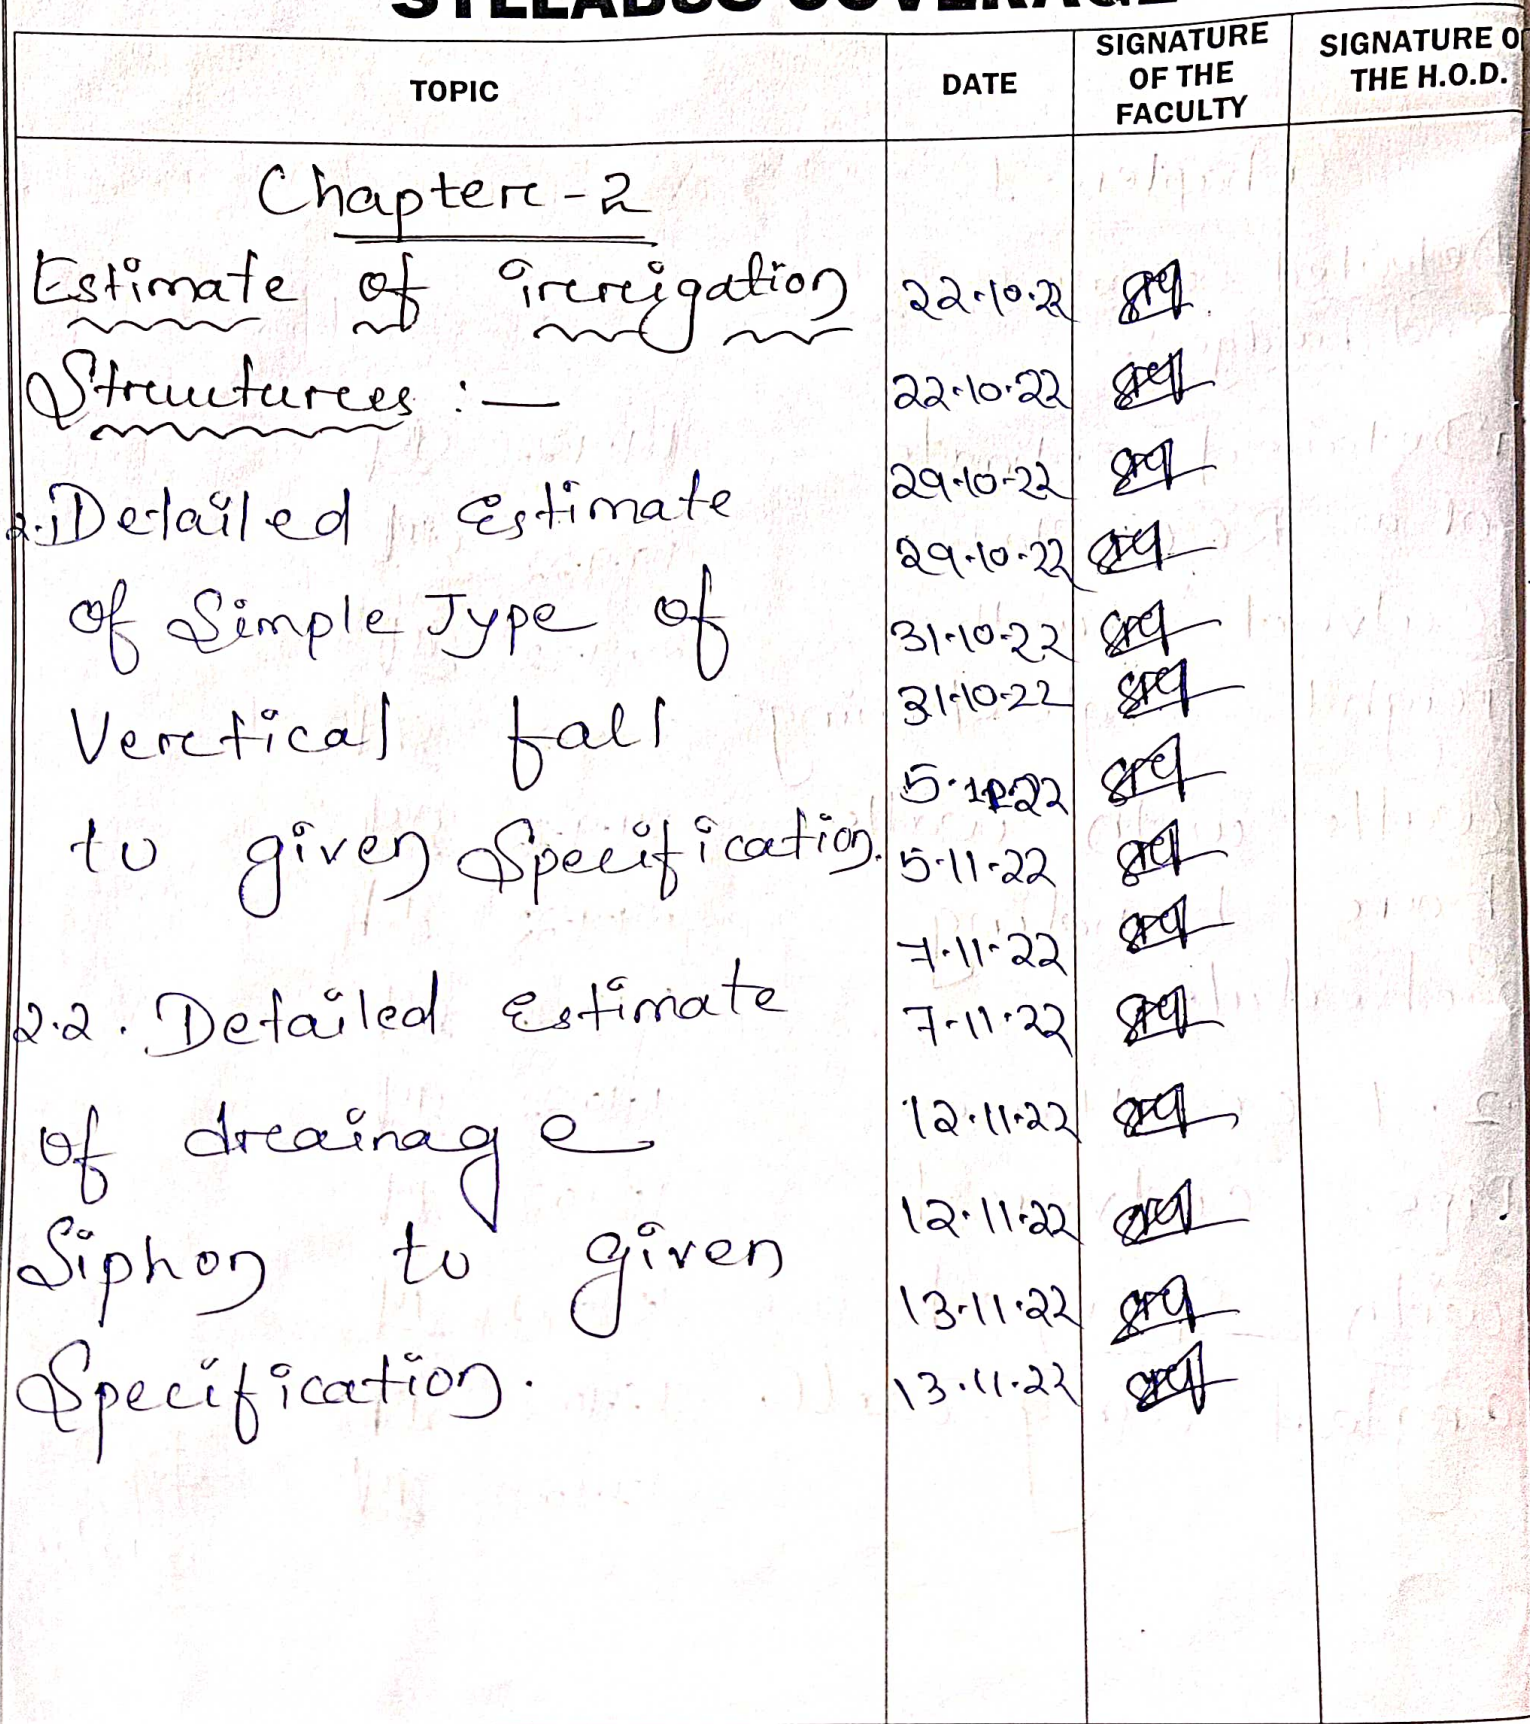 SYLLABUS COVERAGE
TOPIC DATE SIGNATURE OF THE FACULTY SIGNATURE O THE H.O.D.
Chapter - 2
Estimate of irrigation 22.10.22
Structures :— 22.10.22
29.10.22
2.1 Detailed Estimate
29.10.22
of Simple Type of 31.10.22
31.10.22
Vertical fall
5.11.22
to given Specification. 5.11.22
7.11.22
2.2. Detailed Estimate 7.11.22
of drainage 12.11.22
12.11.22
Siphon to given
13.11.22
Specification. 13.11.22